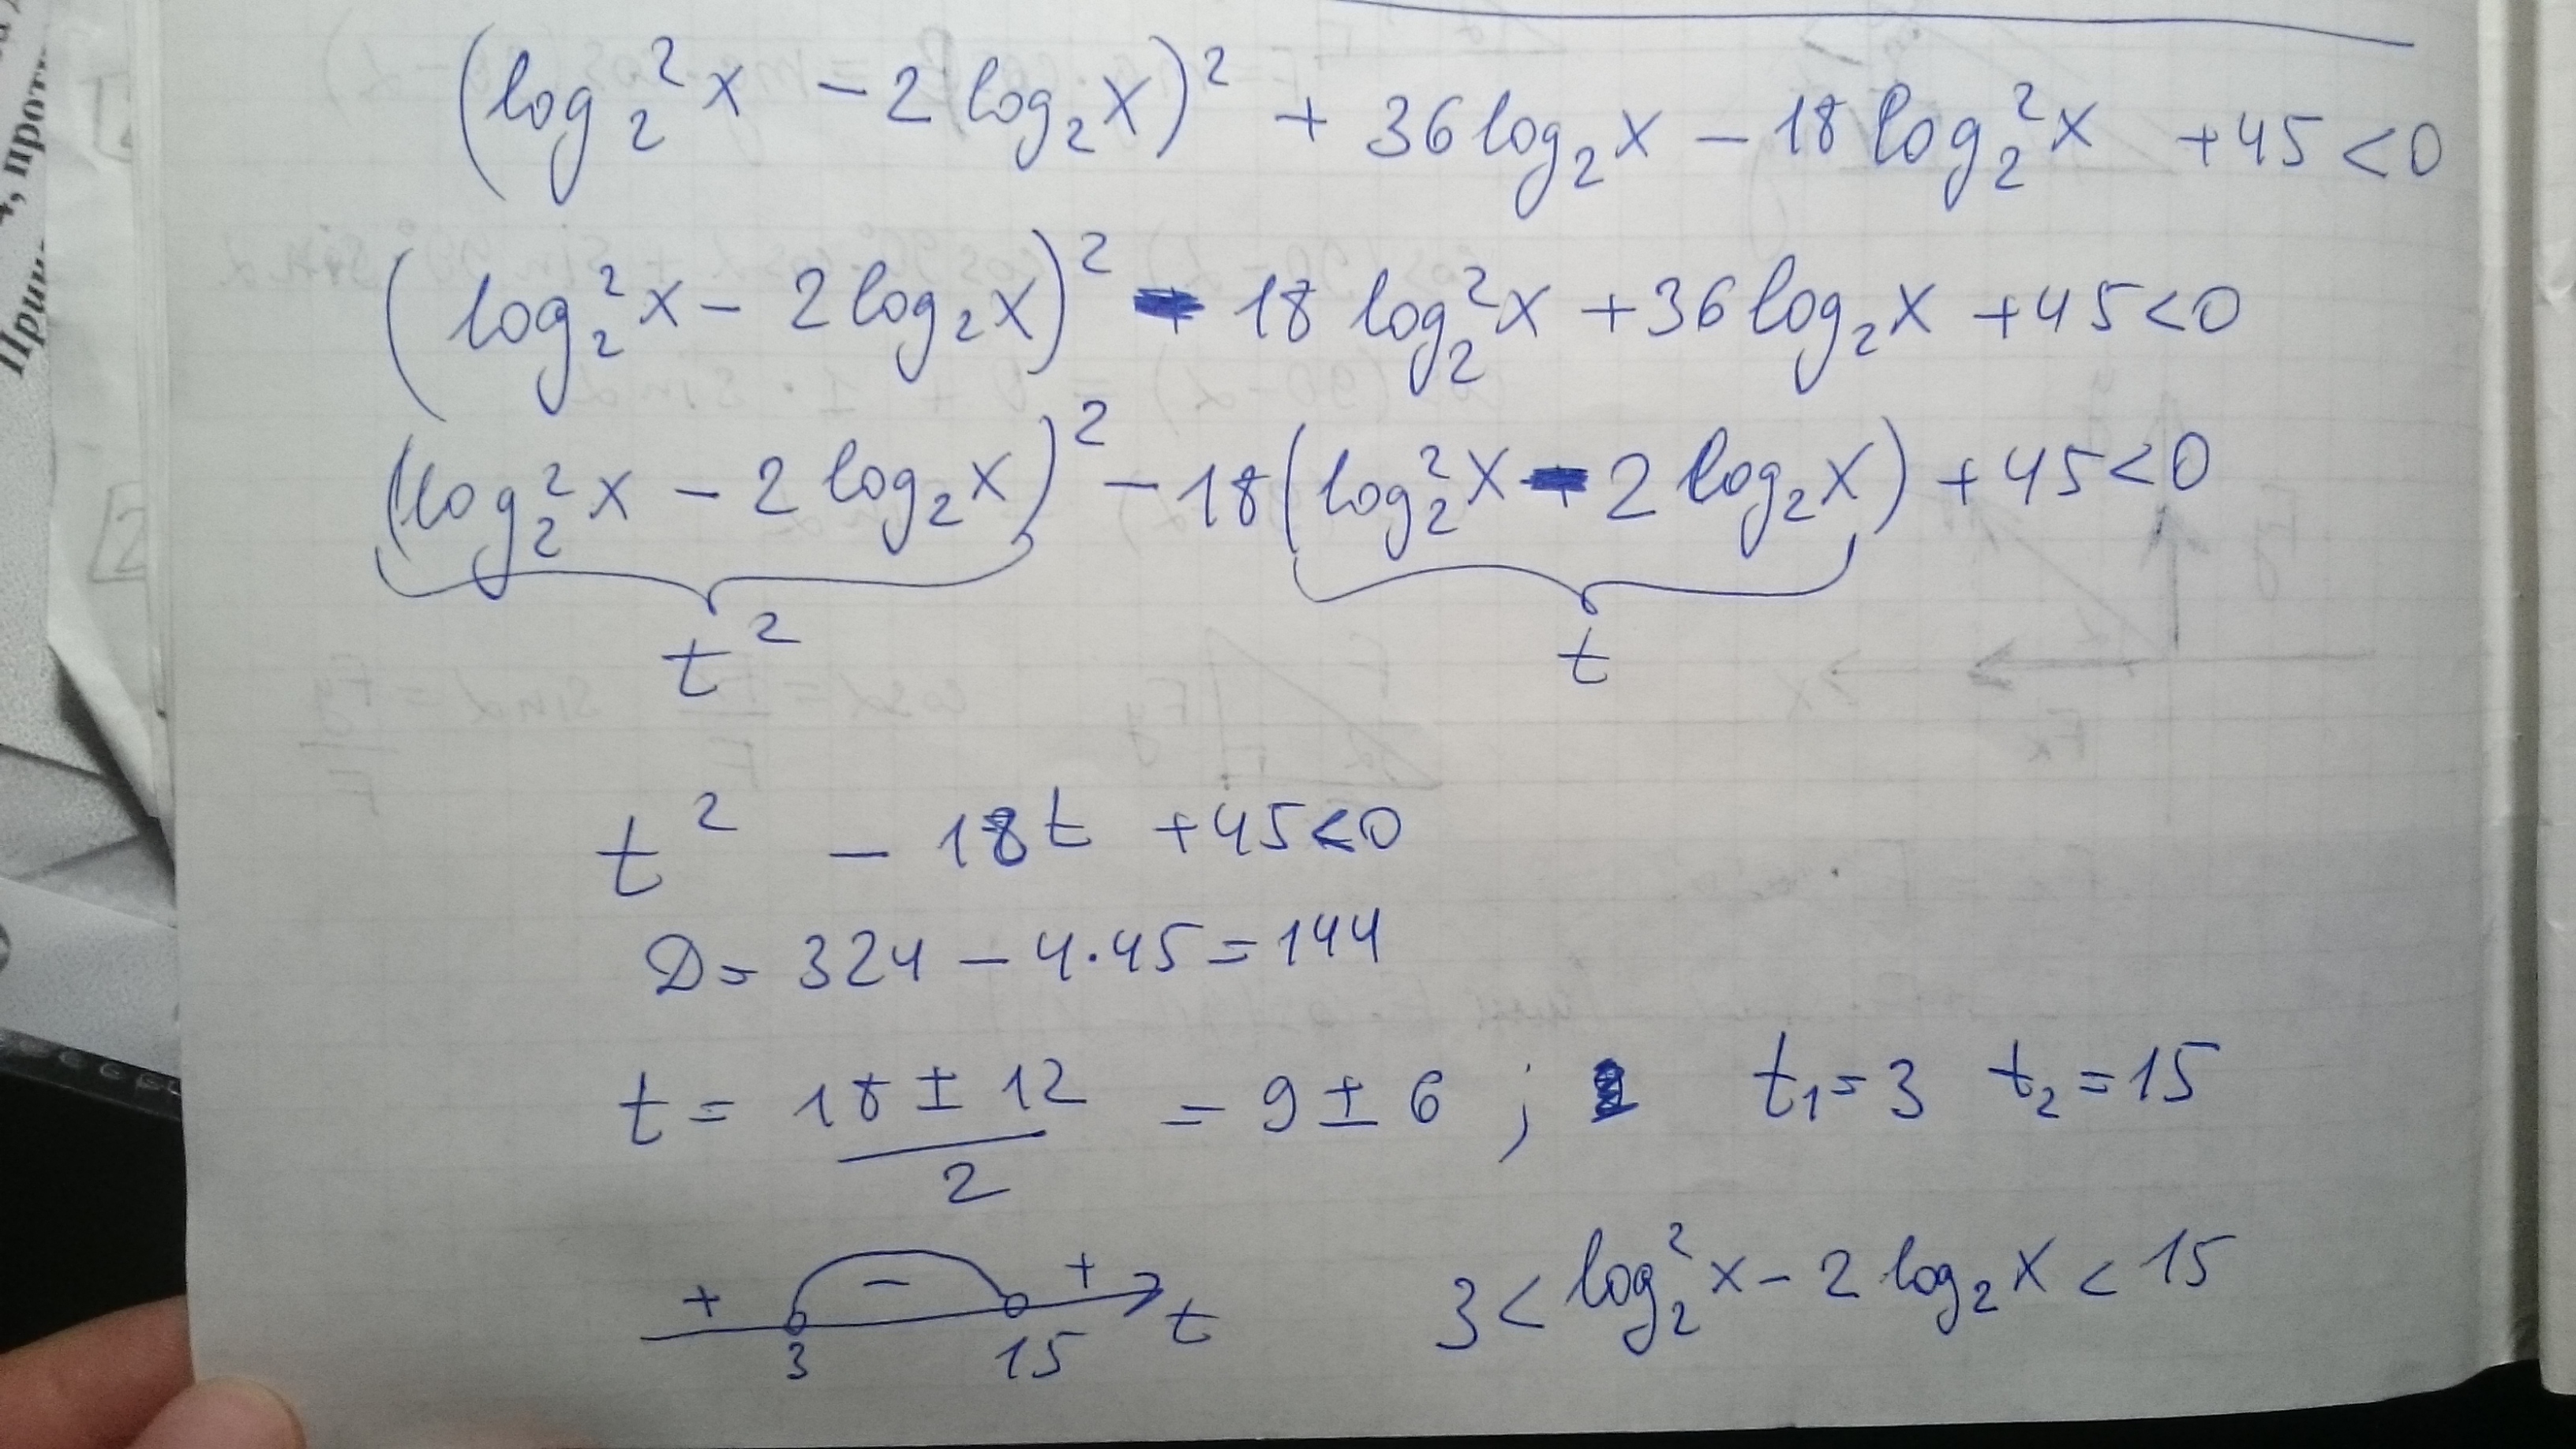 4, прот
(log₂²x − 2log₂x)² + 36log₂x − 18log₂²x +45<0
(log₂²x − 2log₂x)² − 18log₂²x +36log₂x +45<0
(log₂²x − 2log₂x)² − 18(log₂²x − 2log₂x) +45<0
t² t
t² − 18t +45<0
D= 324 − 4·45=144
t= (18 ± 12)/2 = 9 ± 6 ; t₁=3 t₂=15
+ − + t
3 15
3 < log₂²x − 2log₂x < 15